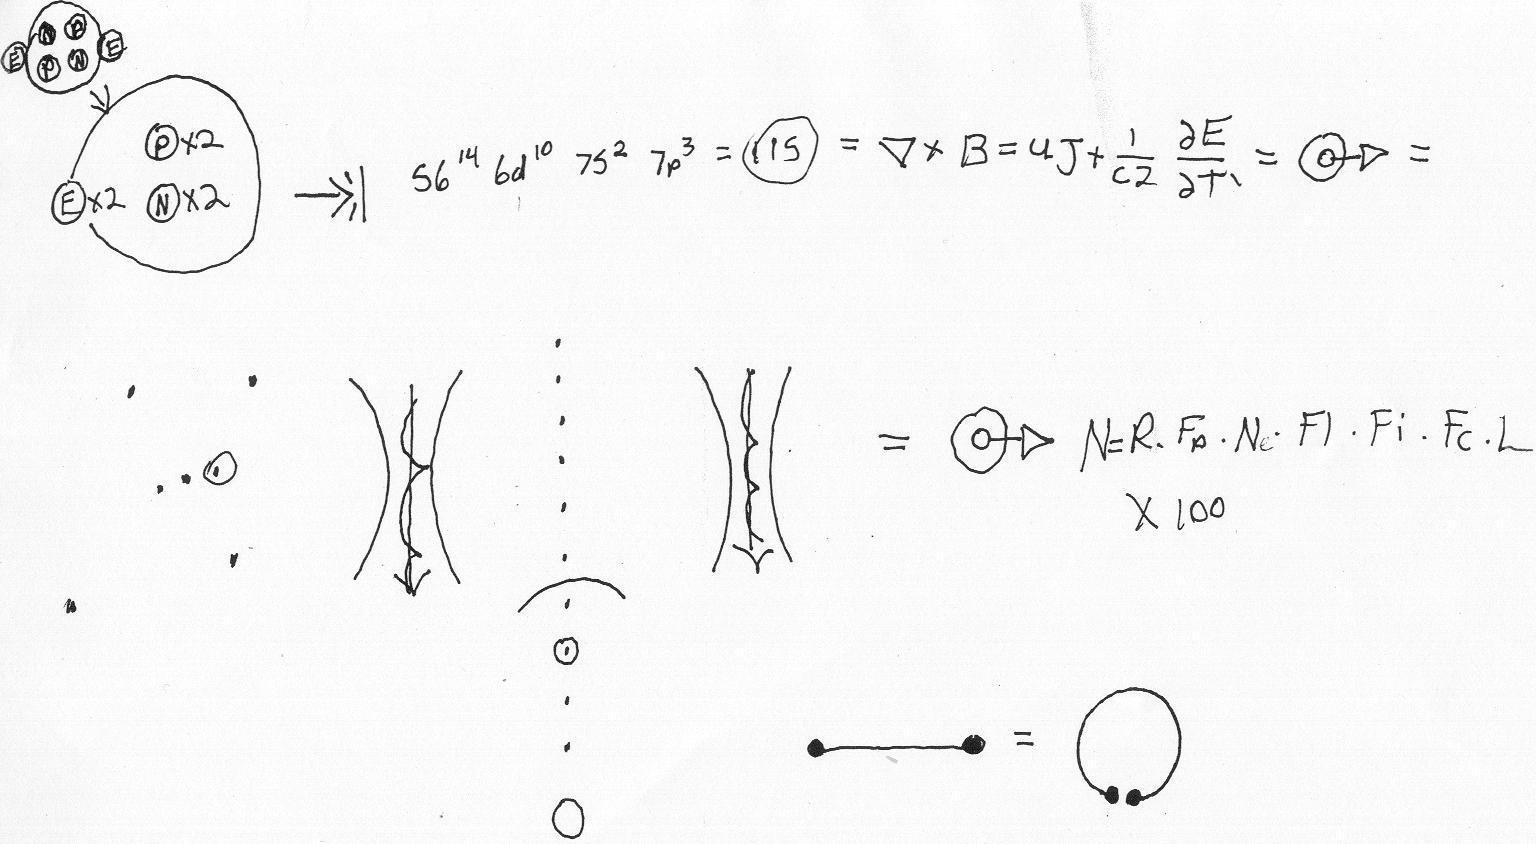 N P
E E
P N
P x2
E x2 N x2
56¹⁴ 6d¹⁰ 7s² 7p³ = 115 = ∇ x B = 4J + 1/c2 ∂E/∂T =
=
= N = R. Fp . Ne . Fl . Fi . Fc . L
X 100
=